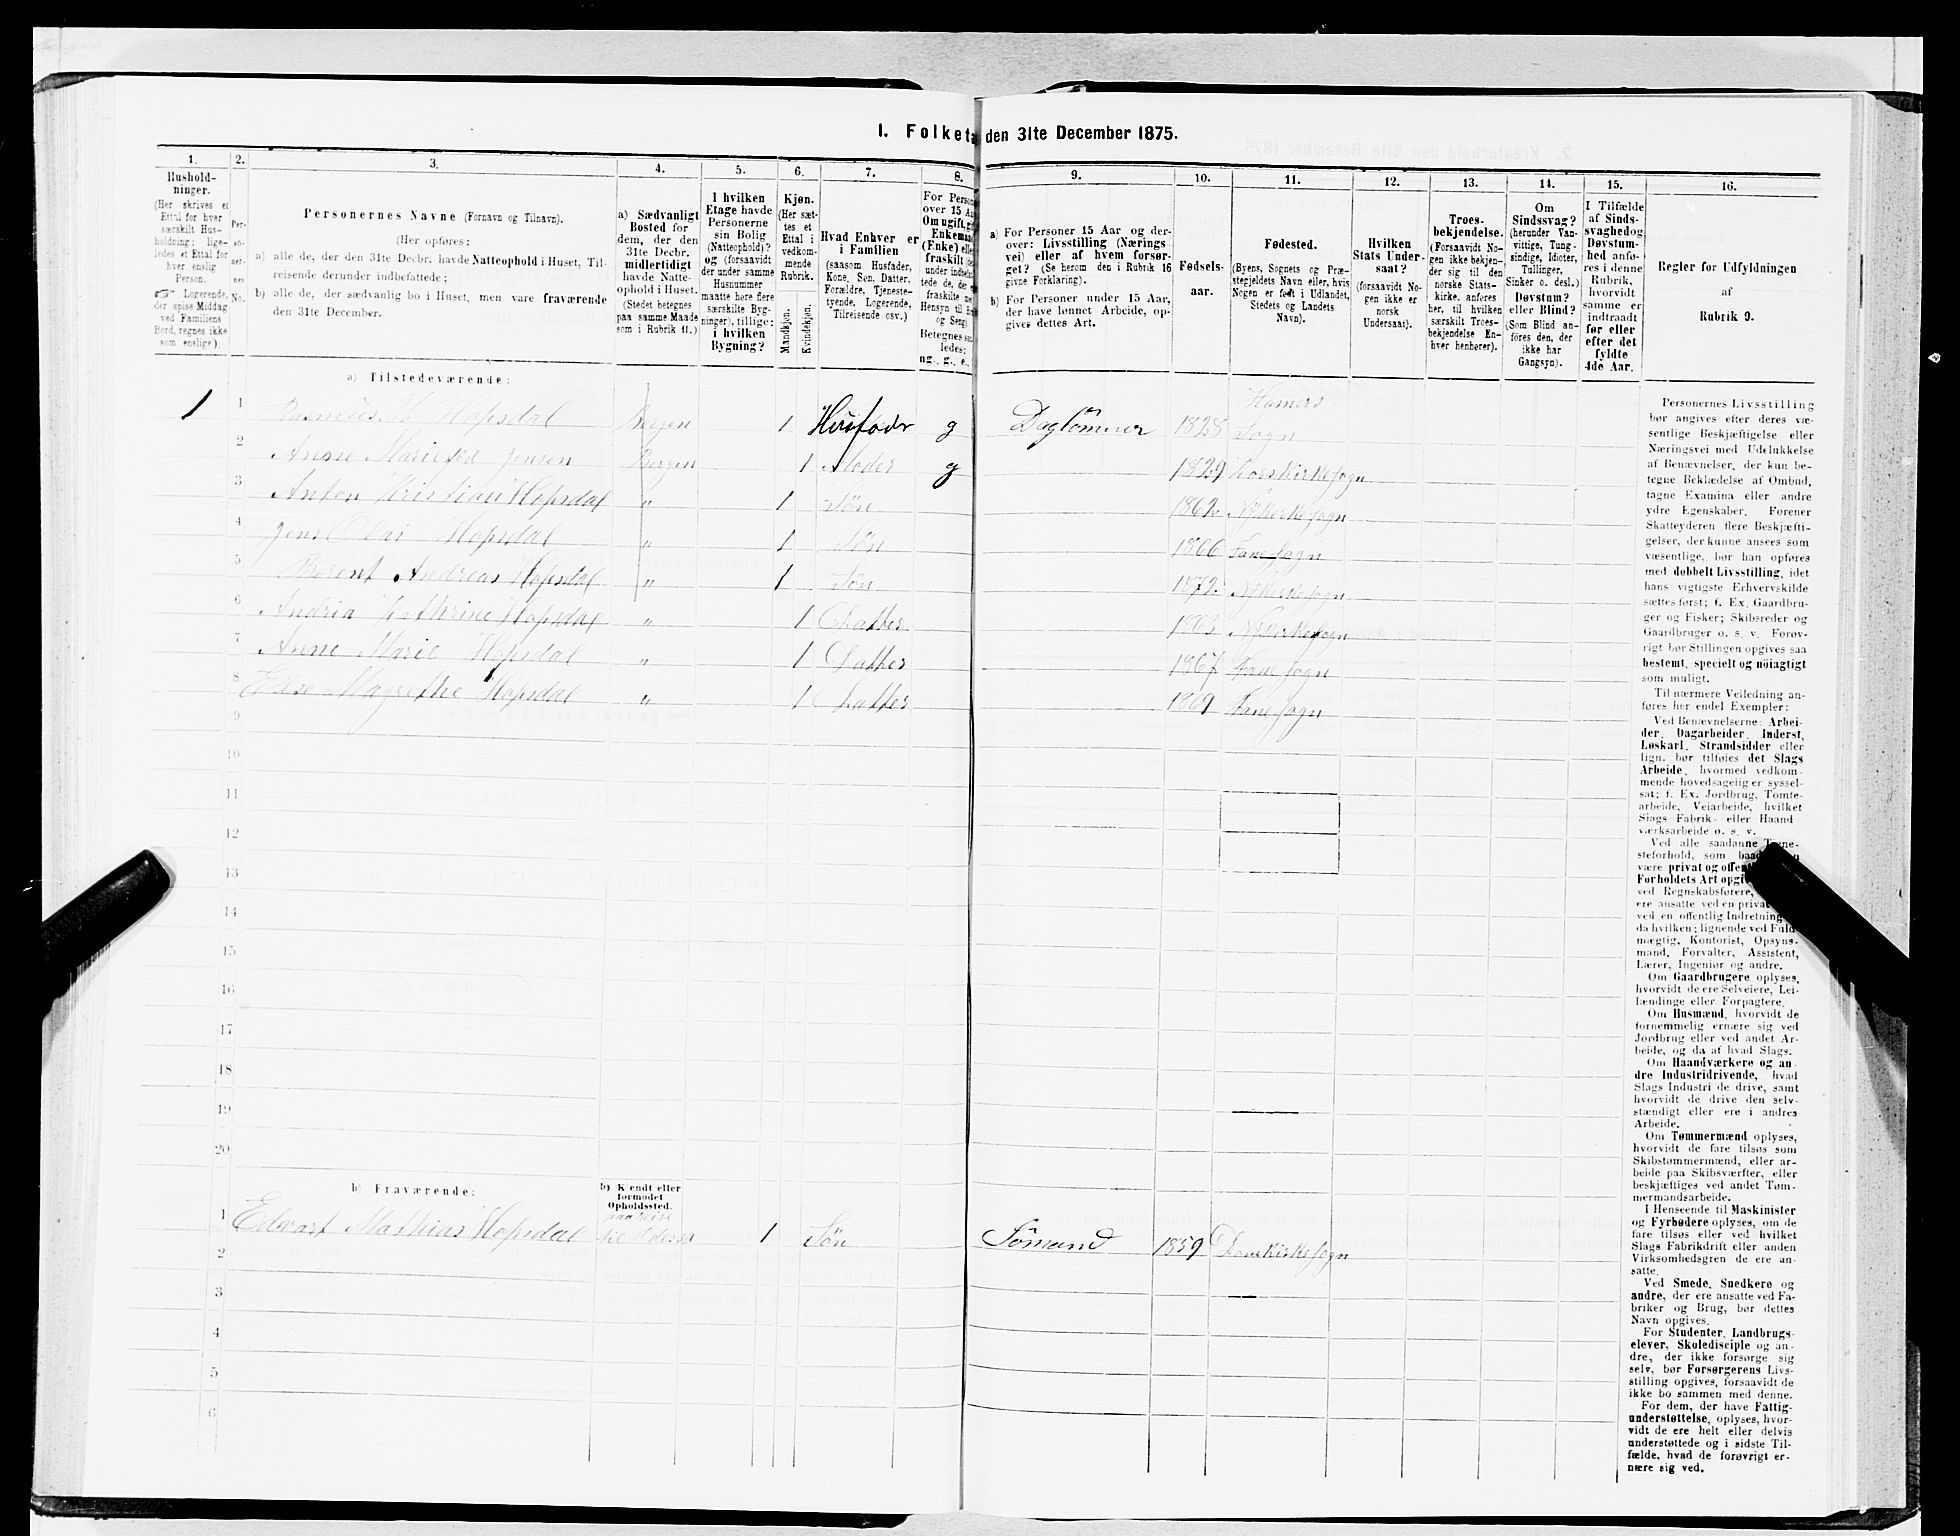 1. Folketæ den 31te December 1875.
1.
Hushold-
ninger.
(Her skrives et
Ettal for hver
særskilt Hus-
holdning; lige-
ledes et Ettal for
hver enslig
Person.
☞ Logerende,
der spise Middag
ved Familiens
Bord, regnes ikke
som enslige).
2.
Per-
so-
ner-
nes
No.
3.
Personernes Navne (Fornavn og Tilnavn).
(Her opføres:
a) alle de, der den 31te Decbr. havde Natteophold i Huset, Til-
reisende derunder indbefattede;
b) alle de, der sædvanlig bo i Huset, men vare fraværende
den 31te December.
4.
a) Sædvanligt
Bosted for
dem, der den
31te Decbr.
midlertidigt
havde Natte-
ophold i Huset.
(Stedet betegnes
paa samme Maade
som i Rubrik 11.)
5.
I hvilken
Etage havde
Personerne
sin Bolig
(Natteophold)?
og (forsaavidt
der under samme
Husnummer
maatte høre flere
særskilte Byg-
ninger), tillige:
i hvilken
Bygning?
6.
Kjøn.
(Her sæt-
tes et
Ettal i
vedkom-
mende
Rubrik.
Mandkjøn.
Kvindekjøn.
7.
Hvad Enhver er
i Familien
(saasom Husfader,
Kone, Søn, Datter,
Forældre, Tjeneste-
tyende, Logerende,
Tilreisende osv.)
8.
For Person
over 15 Aa
Om ugift, g
Enkeman
(Enke) elle
fraskilt
under indbe
tede de, der
fraskilte
Hensyn til
og Seng).
Betegnes
ledes:
ug., g., e.,
9.
a) For Personer 15 Aar og der-
over: Livsstilling (Nærings
vei) eller af hvem forsør-
get? (Se herom den i Rubrik 16
givne Forklaring).
b) For Personer under 15 Aar,
der have lønnet Arbeide, op-
gives dettes Art.
10.
Fødsels-
aar.
11.
Fødested.
(Byens, Sognets og Præ-
stegjeldets Navn eller, hvis
Nogen er født i Udlandet,
Stedets og Landets
Navn).
12.
Hvilken
Stats Under-
saat?
(forsaavidt No-
gen ikke er
norsk
Undersaat).
13.
Troes-
bekjendelse.
(Forsaavidt No-
gen ikke bekjen-
der sig til den
norske Stats-
kirke, anføres
her, til hvilken
særskilt Troes-
bekjendelse En-
hver henhører).
14.
Om
Sindssvag?
(herunder Van-
vittige, Tung-
sindige, Idioter,
Tullinger,
Sinker o. desl.)
Døvstum?
eller Blind?
(Som Blind an-
føres den, der
ikke har
Gangsyn).
15.
I Tilfælde
af Sinds-
svaghed og
Døvstum-
hed anfø-
res i denne
Rubrik,
hvorvidt
samme er
indtraadt
før eller
efter det
fyldte
4de Aar.
16.
Regler for Udfyldningen
af
Rubrik 9.
a) Tilstedeværende:
1 1 Rasmus M Hopsdal Bergen 1 Husfadr g Daglønner 1828 Hamers Sogn
2 Anne Marie fød Jensen Bergen 1 Moder g 1829 Korskirkesogn
3 Anton Kristian Hopsdal „ 1 Søn 1862 Nykirkesogn
4 Jens Olai Hopsdal „ 1 Søn 1866 Fanesogn
5 Berent Andreas Hopsdal „ 1 Søn 1872 Nykirkesogn
6 Andrea Kathrine Hopsdal „ 1 Datter 1863 Nykirkesogn
7 Anne Marie Hopsdal „ 1 Datter 1867 Fane sogn
8 Else Magrethe Hopsdal „ 1 Datter 1869 Fane sogn
9
10
11
12
13
14
15
16
17
18
19
20
b) Fraværende:
b) Kjendt eller
formodet
Opholdssted.
1 Edvart Mathias Hopsdal paa reise til Odessa 1 Søn Sømand 1859 Domkirkesogn
2
3
4
5
6
Personernes Livsstilling
bør angives efter deres væ-
sentlige Beskjæftigelse eller
Næringsvei med Udelukkelse
af Benævnelser, der kun be-
tegne Beklædelse af Ombud,
tagne Examina eller andre
ydre Egenskaber. Forener
Skatteyderen flere Beskjæfti-
gelser, der kunne ansees som
væsentlige, bør han opføres
med dobbelt Livsstilling, idet
hans vigtigste Erhvervskilde
sættes først; f. Ex. Gaardbru-
ger og Fisker; Skibsreder og
Gaardbruger o. s. v. Forøv-
rigt bør Stillingen opgives saa
bestemt, specielt og nöiagtigt
som muligt.
Til nærmere Veiledning an-
føres her endel Exempler:
Ved Benævnelserne: Arbei-
der, Dagarbeider, Inderst,
Løskarl, Strandsidder eller
lign. bør tilføies det Slags
Arbeide, hvormed vedkom-
mende hovedsagelig er syssel-
sat; f. Ex. Jordbrug, Tomte-
arbeide, Veiarbeide, hvilket
Slags Fabrik- eller Haand
værksarbeide o. s. v.
Ved alle saadanne Tjene-
steforhold, som baade
være privat og offen
Forholdets Art opgi
ved Regnskabsførere,
ere ansatte ved en privat
ved en offentlig Indretning
da hvilken; lignende ved Fuld
mægtig, Kontorist, Opsyns-
mand, Forvalter, Assistent,
Lærer, Ingeniør og andre.
Om Gaardbrugere oplyses,
hvorvidt de ere Selveiere, Lei-
lændinge eller Forpagtere.
Om Husmænd, hvorvidt de
fornemmelig ernære sig ved
Jordbrug eller ved andet Ar-
beide, og da af hvad Slags.
Om Haandværkere og an-
dre Industridrivende, hvad
Slags Industri de drive, samt
hvorvidt de drive den selv-
stændigt eller ere i andres
Arbeide.
Om Tømmermænd oplyses,
hvorvidt de fare tilsøs som
Skibstømmermænd, eller ar-
beide paa Skibsværfter, eller
beskjæftiges ved andet Tøm-
mermandsarbeide.
I Henseende til Maskinister
og Fyrbødere oplyses, om de
fare tilsøs eller ved hvilket
Slags Fabrikdrift eller anden
Virksomhedsgren de ere an-
satte.
Ved Smede, Snedkere og
andre, der ere ansatte ved Fa-
briker og Brug, bør dettes
Navn opgives.
For Studenter, Landbrugs-
elever, Skoledisciple og an-
dre, der ikke forsørge sig
selv, bør Forsørgerens Livs-
stilling opgives, forsaavidt de
ikke bo sammen med denne.
For dem, der have Fattig-
understøttelse, oplyses, hvor-
vidt de ere helt eller delvis
understøttede og i sidste Til-
fælde, hvad de forøvrigt er-
nære sig ved.